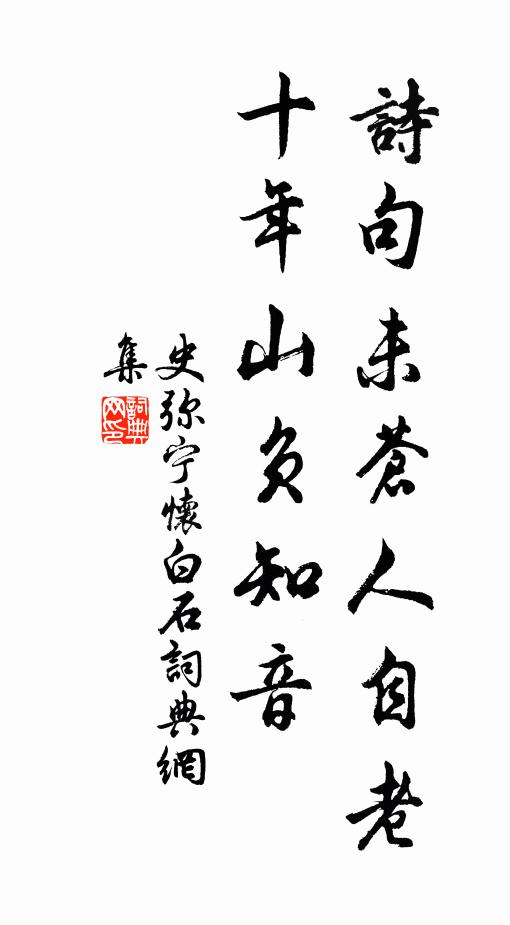 詩句未蒼人自老
十年山負知音
史弥宁懷白石詞典網
集
詞典網印